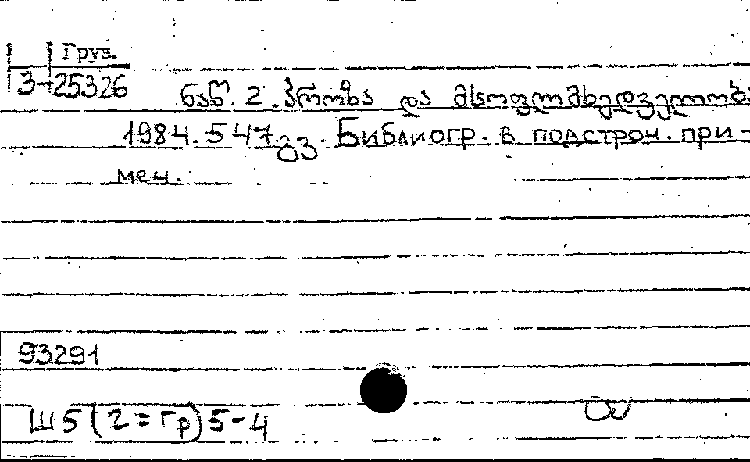 Груз.
3-25326
ნაწ. 2. პროზა და მსოფლმხედველობა
1984. 547 გვ. Библиогр. в подстроч. при-
меч.
93291
Ш5(2=Гр)5-4